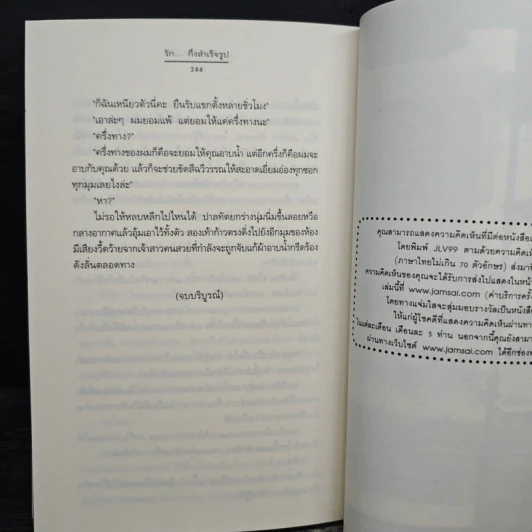 รัก... กึ่งสำเร็จรูป
244
"ก็ฉันเหนียวตัวนี่คะ ยืนรับแขกตั้งหลายชั่วโมง"
"เอาล่ะๆ ผมยอมแพ้ แต่ยอมให้แค่ครึ่งทางนะ"
"ครึ่งทาง?"
"ครึ่งทางของผมก็คือจะยอมให้คุณอาบน้ำ แต่อีกครึ่งก็คือผมจะ
อาบกับคุณด้วย แล้วก็จะช่วยขัดสีฉวีวรรณให้สะอาดเอี่ยมอ่องทุกซอก
ทุกมุมเลยไงล่ะ"
"หา?"
ไม่รอให้หลบหลีกไปไหนได้ ปาลทัตยกร่างนุ่มนิ่มขึ้นลอยหวือ
กลางอากาศแล้วอุ้มเอาไว้ทั้งตัว สองเท้าก้าวตรงดิ่งไปยังอีกมุมของห้อง
มีเสียงวี้ดว้ายจากเจ้าสาวคนสวยที่กำลังจะถูกจับแก้ผ้าอาบน้ำกรีดร้อง
ดังลั่นตลอดทาง
(จบบริบูรณ์)
คุณสามารถแสดงความคิดเห็นที่มีต่อหนังสือ
โดยพิมพ์ JLV99 ตามด้วยความคิดเห็
(ภาษาไทยไม่เกิน 70 ตัวอักษร) ส่งมาที่
ความคิดเห็นของคุณจะได้รับการส่งไปแสดงในหน้
เล่มนี้ที่ www.jamsai.com (ค่าบริการครั้
โดยทางแจ่มใสจะสุ่มมอบรางวัลเป็นหนังสือ
ให้แก่ผู้โชคดีที่แสดงความคิดเห็นผ่านทาง
ในแต่ละเดือน เดือนละ 5 ท่าน นอกจากนี้คุณยังสามา
ผ่านทางเว็บไซต์ www.jamsai.com ได้อีกช่องท